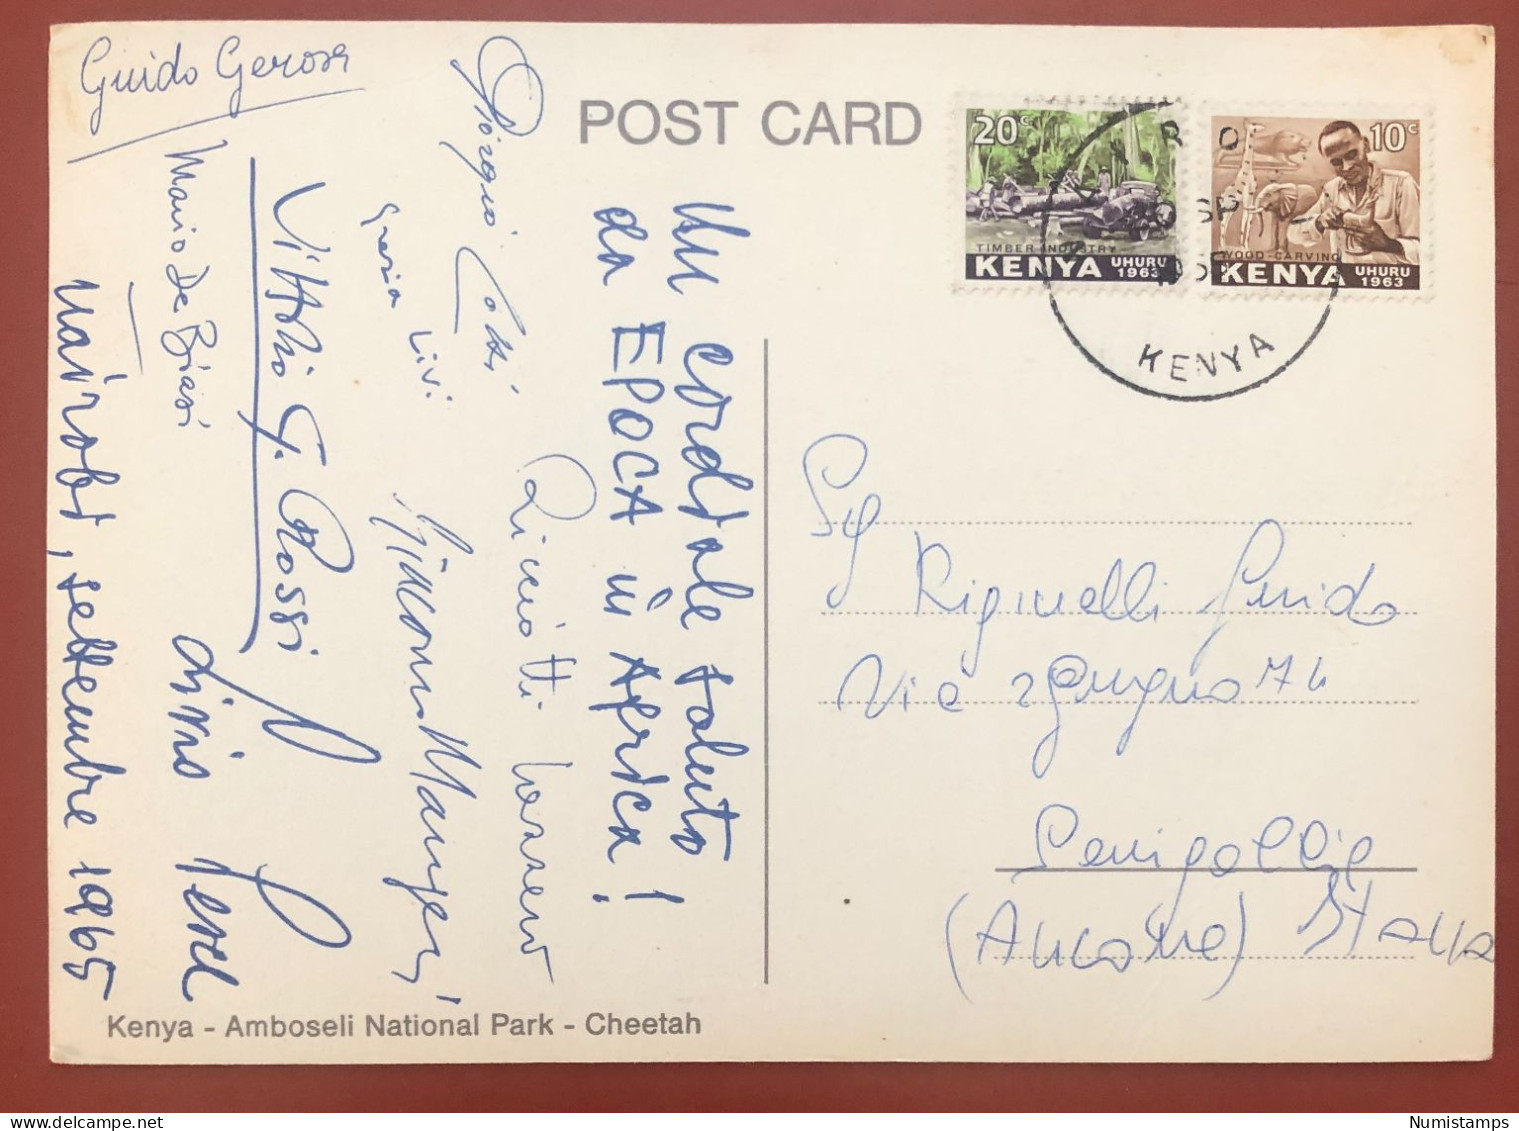 Guido Gerosa
POST CARD
20c
TIMBER INDUSTRY
KENYA UHURU 1963
10c
WOOD-CARVING
KENYA UHURU 1963
KENYA
Un cordiale saluto
da EPOCA in Africa!
Giorgio
Grazia Livi
Ricciotti Lazzero
Vittorio G. Rossi
Mario De Biasi
Livio Pesce
Nairobi, settembre 1965
Sg
Riginelli Guido
Via 2 Giugno 74
Senigallia
(Ancona) Italia
Kenya - Amboseli National Park - Cheetah
Numistamps